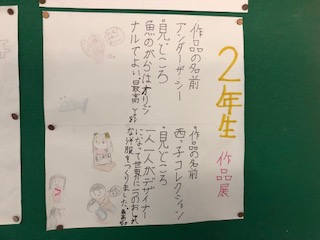 2年生 作品展
作品の名前
アンダーザシー
・見どころ
魚のがらはオリジ
ナルでよい最高
・作品の名前
西っ子コレクション
・見どころ
一人一人がデザイナー
になって世界に一つのおしゃれ
な洋服をつくりました。